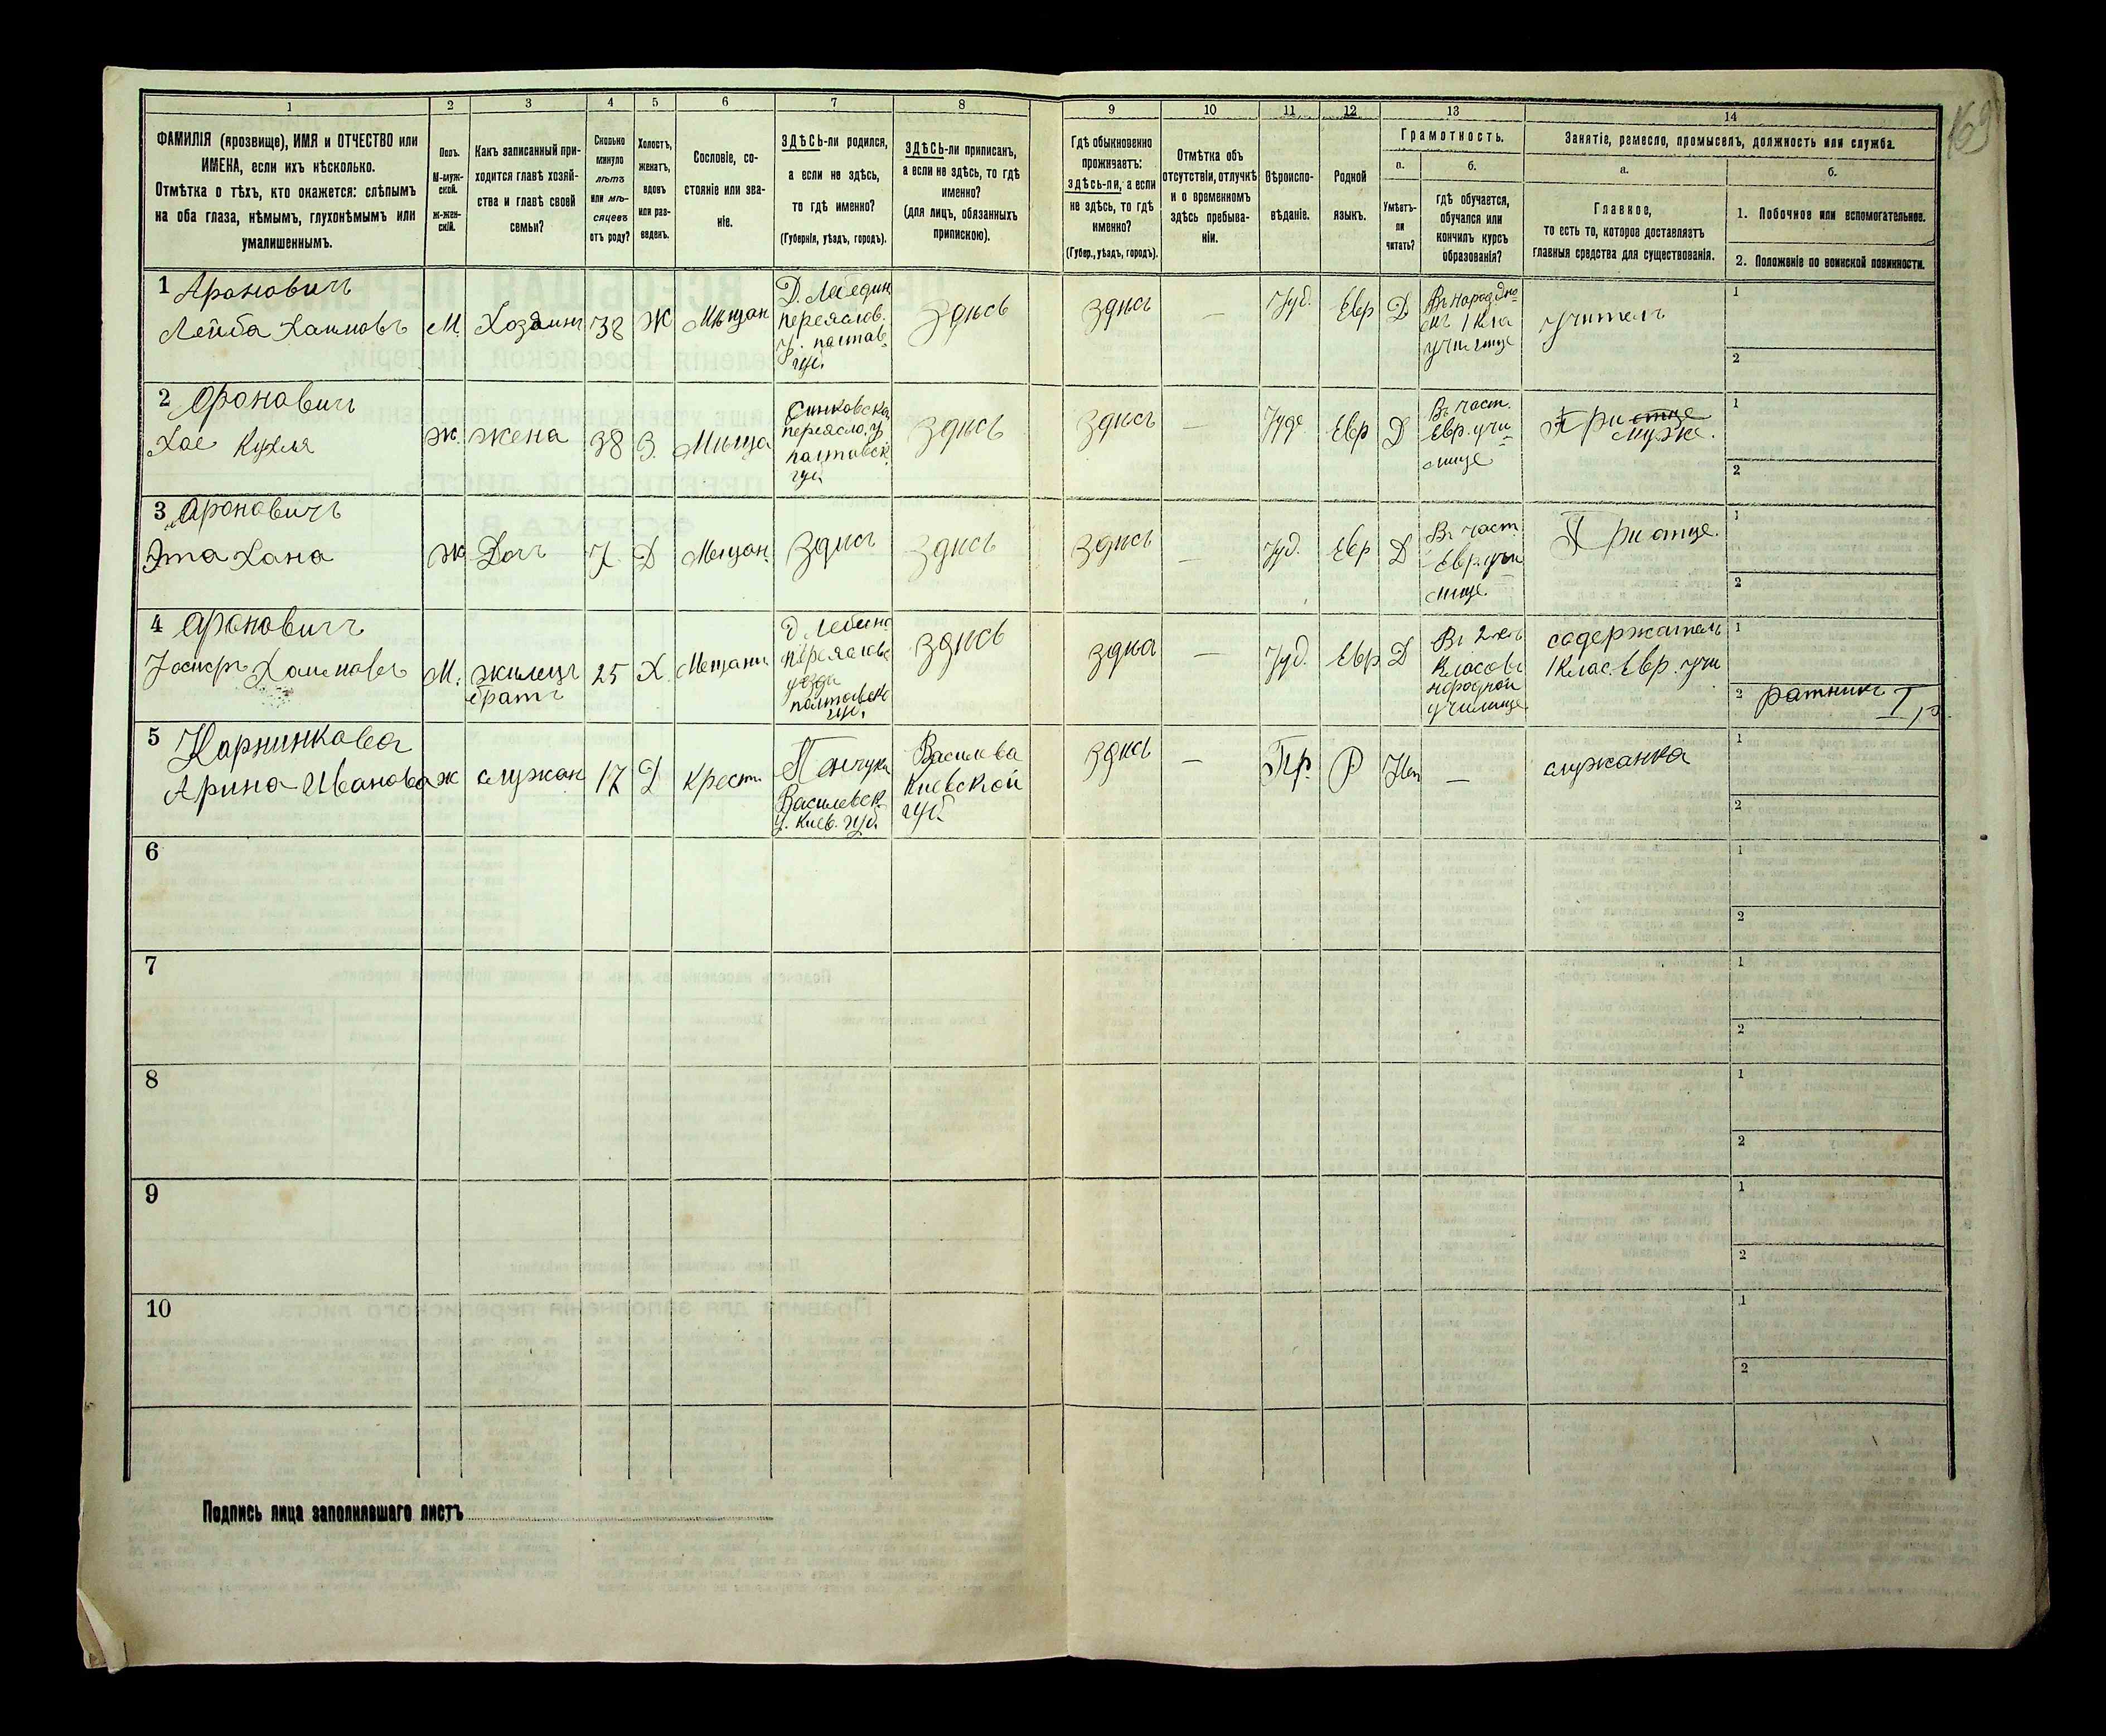 169
1 2 3 4 5 6 7 8 9 10 11 12 13 14
ФАМИЛІЯ (прозвище), ИМЯ и ОТЧЕСТВО или
ИМЕНА, если ихъ нѣсколько.
Отмѣтка о тѣхъ, кто окажется: слѣпымъ
на оба глаза, нѣмымъ, глухонѣмымъ или
умалишеннымъ.
Полъ.
М-муж-
ской.
ж-жен-
скій.
Какъ записанный при-
ходится главѣ хозяй-
ства и главѣ своей
семьи?
Сколько
минуло
лѣтъ
или мѣ-
сяцевъ
отъ роду?
Холостъ,
женатъ,
вдовъ
или раз-
веденъ.
Сословіе, со-
стояніе или зва-
ніе.
ЗДѢСЬ-ли родился,
а если не здѣсь,
то гдѣ именно?
(Губернія, уѣздъ, городъ).
ЗДѢСЬ-ли приписанъ,
а если не здѣсь, то гдѣ
именно?
(для лицъ, обязанныхъ
припискою).
Гдѣ обыкновенно
проживаетъ:
здѣсь-ли, а если
не здѣсь, то гдѣ
именно?
(Губер., уѣздъ, городъ).
Отмѣтка объ
отсутствіи, отлучкѣ
и о временномъ
здѣсь пребыва-
ніи.
Вѣроиспо-
вѣданіе.
Родной
языкъ.
Грамотность.
а.
Умѣетъ-
ли
читать?
б.
гдѣ обучается,
обучался или
кончилъ курсъ
образованія?
Занятіе, ремесло, промыселъ, должность или служба.
а.
Главное,
то есть то, которое доставляетъ
главныя средства для существованія.
б.
1. Побочное или вспомогательное.
2. Положеніе по воинской повинности.
1 Ароновичъ
Лейба Хаимовъ
М.
Хозяинъ
38
Ж
Мѣщан
Д. Лебедин
переяслов.
у. полтав.
губ.
Здѣсь
Здѣсь
—
Іуд.
Евр
Д
училище
учитель
1
2
2 Ароновичъ
Хае
ж.
жена
38
З.
Мѣща
переясло. у
полтавск.
губ.
Здѣсь
Здѣсь
—
Іуде
Евр
Д
Въ част.
Евр. учи
лище
При отце
муже.
1
2
3 Ароновичъ
Эта Хана
ж
Дочь
7.
Д
Мещан.
Здѣсь
Здѣсь
Здѣсь
—
Іуд.
Евр
Д
Въ част
Евр. учи
лище.
При отце.
1
2
4 Ароновичъ
Хаимовъ
М.
жилецъ
братъ
25
Х.
Мещани
переяслов
уезда
полтавск
губ.
Здѣсь
—
Іуд.
Евр
Д
Въ 2 хъ
Класовъ
народной
училище
содержатель
1 клас. Евр. учи
1
2 ратникъ I р.
5
Арина Иванова
ж
служан
17
Д
Крест.
Василевск.
у. Киев. губ.
Василева
Киевской
губ
Здѣсь
—
Пр.
Р
Нет
—
служанка
1
2
6
1
2
7
1
2
8
1
2
9
1
2
10
1
2
Подпись лица заполнявшаго листъ